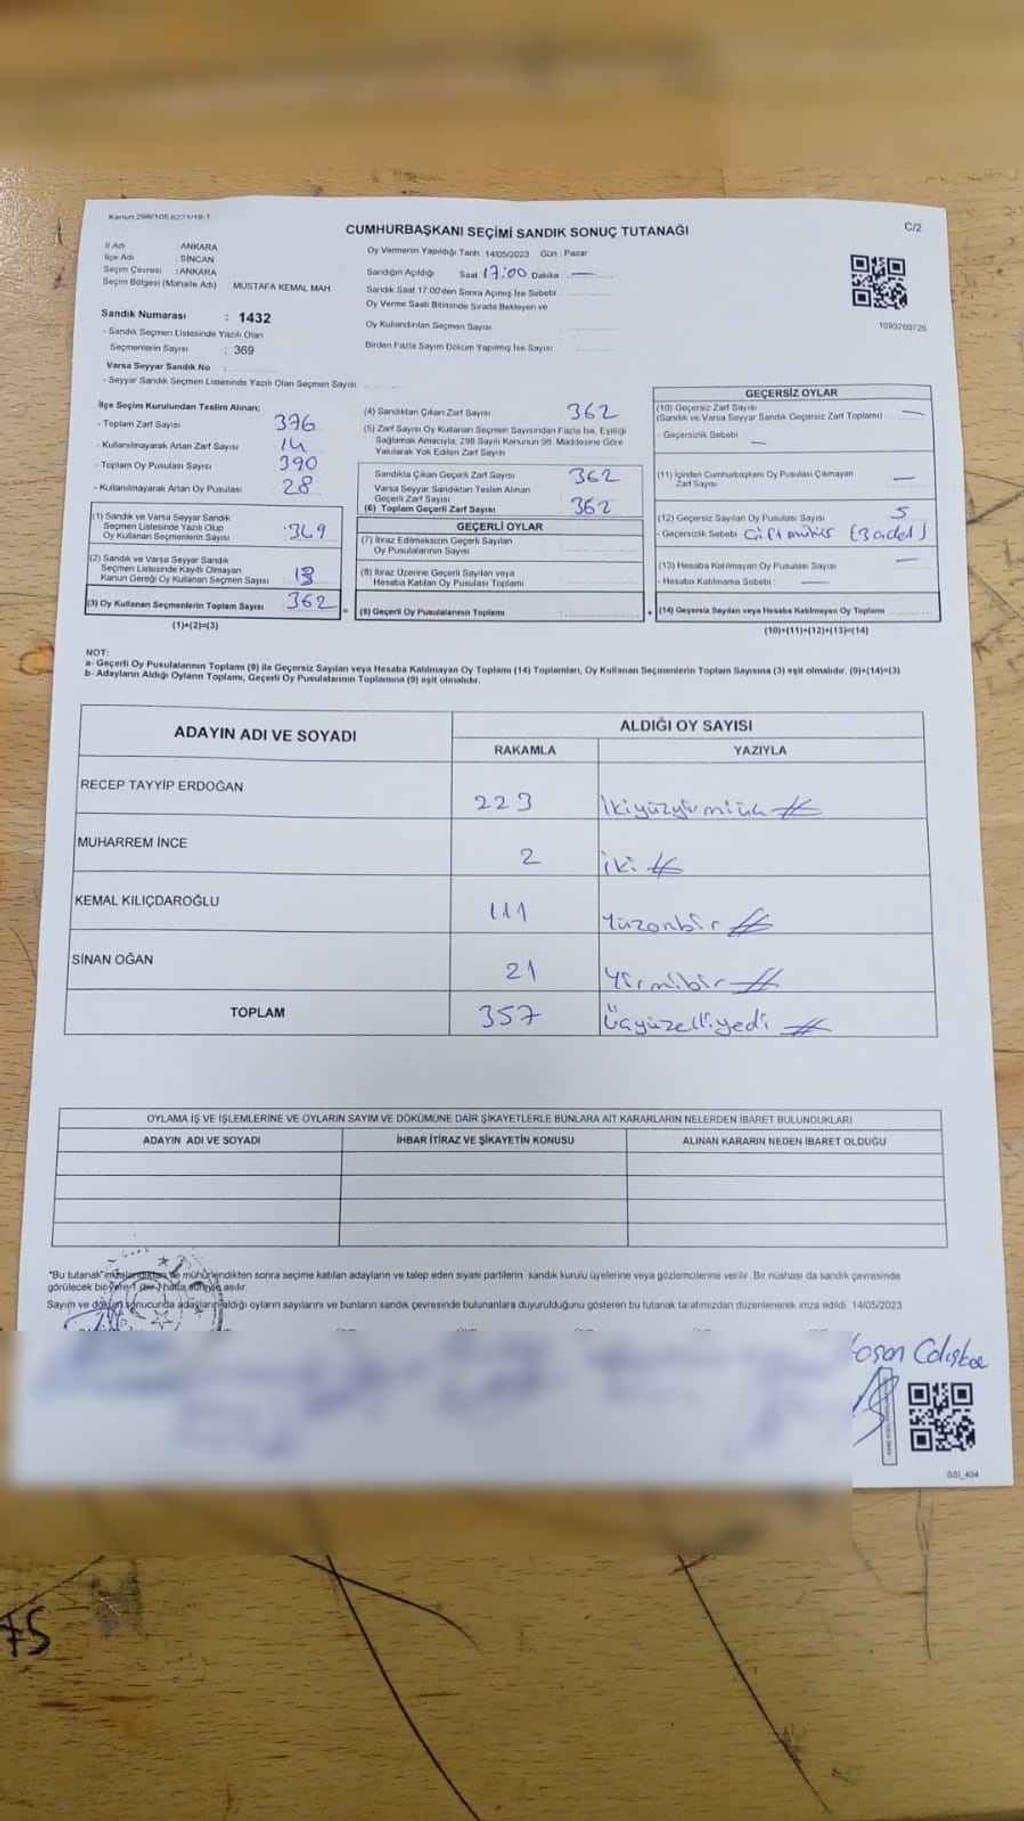 CUMHURBAŞKANI SEÇİMİ SANDIK SONUÇ TUTANAĞI
C/2
İl Adı ANKARA
İlçe Adı : SİNCAN
Seçim Çevresi : ANKARA
Seçim Bölgesi (Mahalle Adı) MUSTAFA KEMAL MAH.
Oy Vermenin Yapıldığı Tarih: 14/05/2023 Gün : Pazar
Sandığın Açıldığı Saat 17:00 Dakika : —
Sandık Saat 17:00'den Sonra Açılmış İse Sebebi
Oy Verme Saati Bitiminde Sırada Bekleyen ve
Oy Kullandırılan Seçmen Sayısı
Birden Fazla Sayım Döküm Yapılmış İse Sayısı
1093760726
Sandık Numarası : 1432
- Sandık Seçmen Listesinde Yazılı Olan
Seçmenlerin Sayısı : 369
Varsa Seyyar Sandık No :
- Seyyar Sandık Seçmen Listesinde Yazılı Olan Seçmen Sayısı
İlçe Seçim Kurulundan Teslim Alınan:
- Toplam Zarf Sayısı 376
- Kullanılmayarak Artan Zarf Sayısı 14
- Toplam Oy Pusulası Sayısı 390
- Kullanılmayarak Artan Oy Pusulası 28
(1) Sandık ve Varsa Seyyar Sandık
Seçmen Listesinde Yazılı Olup
Oy Kullanan Seçmenlerin Sayısı 349
(2) Sandık ve Varsa Seyyar Sandık
Seçmen Listesinde Kayıtlı Olmayan
Kanun Gereği Oy Kullanan Seçmen Sayısı 13
(3) Oy Kullanan Seçmenlerin Toplam Sayısı 362
(1)+(2)=(3)
(4) Sandıktan Çıkan Zarf Sayısı 362
(5) Zarf Sayısı Oy Kullanan Seçmen Sayısından Fazla İse, Eşitliği
Sağlamak Amacıyla, 298 Sayılı Kanunun 98. Maddesine Göre
Yakılarak Yok Edilen Zarf Sayısı
Sandıkta Çıkan Geçerli Zarf Sayısı 362
Varsa Seyyar Sandıktan Teslim Alınan
Geçerli Zarf Sayısı
(6) Toplam Geçerli Zarf Sayısı 362
GEÇERLİ OYLAR
(7) İtiraz Edilmeksizin Geçerli Sayılan
Oy Pusulalarının Sayısı
(8) İtiraz Üzerine Geçerli Sayılan veya
Hesaba Katılan Oy Pusulası Toplamı
(9) Geçerli Oy Pusulalarının Toplamı
GEÇERSİZ OYLAR
(10) Geçersiz Zarf Sayısı —
(Sandık ve Varsa Seyyar Sandık Geçersiz Zarf Toplamı)
- Geçersizlik Sebebi : —
(11) İçinden Cumhurbaşkanı Oy Pusulası Çıkmayan
Zarf Sayısı —
(12) Geçersiz Sayılan Oy Pusulası Sayısı 5
- Geçersizlik Sebebi : Çift mühür (3 adet)
(13) Hesaba Katılmayan Oy Pusulası Sayısı —
- Hesaba Katılmama Sebebi : —
(14) Geçersiz Sayılan veya Hesaba Katılmayan Oy Toplamı
(10)+(11)+(12)+(13)=(14)
NOT:
a- Geçerli Oy Pusulalarının Toplamı (9) ile Geçersiz Sayılan veya Hesaba Katılmayan Oy Toplamı (14) Toplamları, Oy Kullanan Seçmenlerin Toplam Sayısına (3) eşit olmalıdır. (9)+(14)=(3)
b- Adayların Aldığı Oyların Toplamı, Geçerli Oy Pusulalarının Toplamına (9) eşit olmalıdır.
ADAYIN ADI VE SOYADI
ALDIĞI OY SAYISI
RAKAMLA YAZIYLA
RECEP TAYYİP ERDOĞAN 223 İkiyüzyirmiüç
MUHARREM İNCE 2 İki
KEMAL KILIÇDAROĞLU 111 Yüzonbir
SİNAN OĞAN 21 Yirmibir
TOPLAM 357 Üçyüzelliyedi
OYLAMA İŞ VE İŞLEMLERİNE VE OYLARIN SAYIM VE DÖKÜMÜNE DAİR ŞİKAYETLERLE BUNLARA AİT KARARLARIN NELERDEN İBARET BULUNDUKLARI
ADAYIN ADI VE SOYADI İHBAR İTİRAZ VE ŞİKAYETİN KONUSU ALINAN KARARIN NEDEN İBARET OLDUĞU
"Bu tutanak mühürlendikten sonra seçime katılan adayların ve talep eden siyasi partilerin sandık kurulu üyelerine veya gözlemcilerine verilir. Bir nüshası da sandık çevresinde
görülecek bir yere asılır.
Sayım ve döküm sonucunda adayların aldığı oyların sayılarını ve bunların sandık çevresinde bulunanlara duyurulduğunu gösteren bu tutanak tarafımızdan düzenlenerek imza edildi. 14/05/2023
75